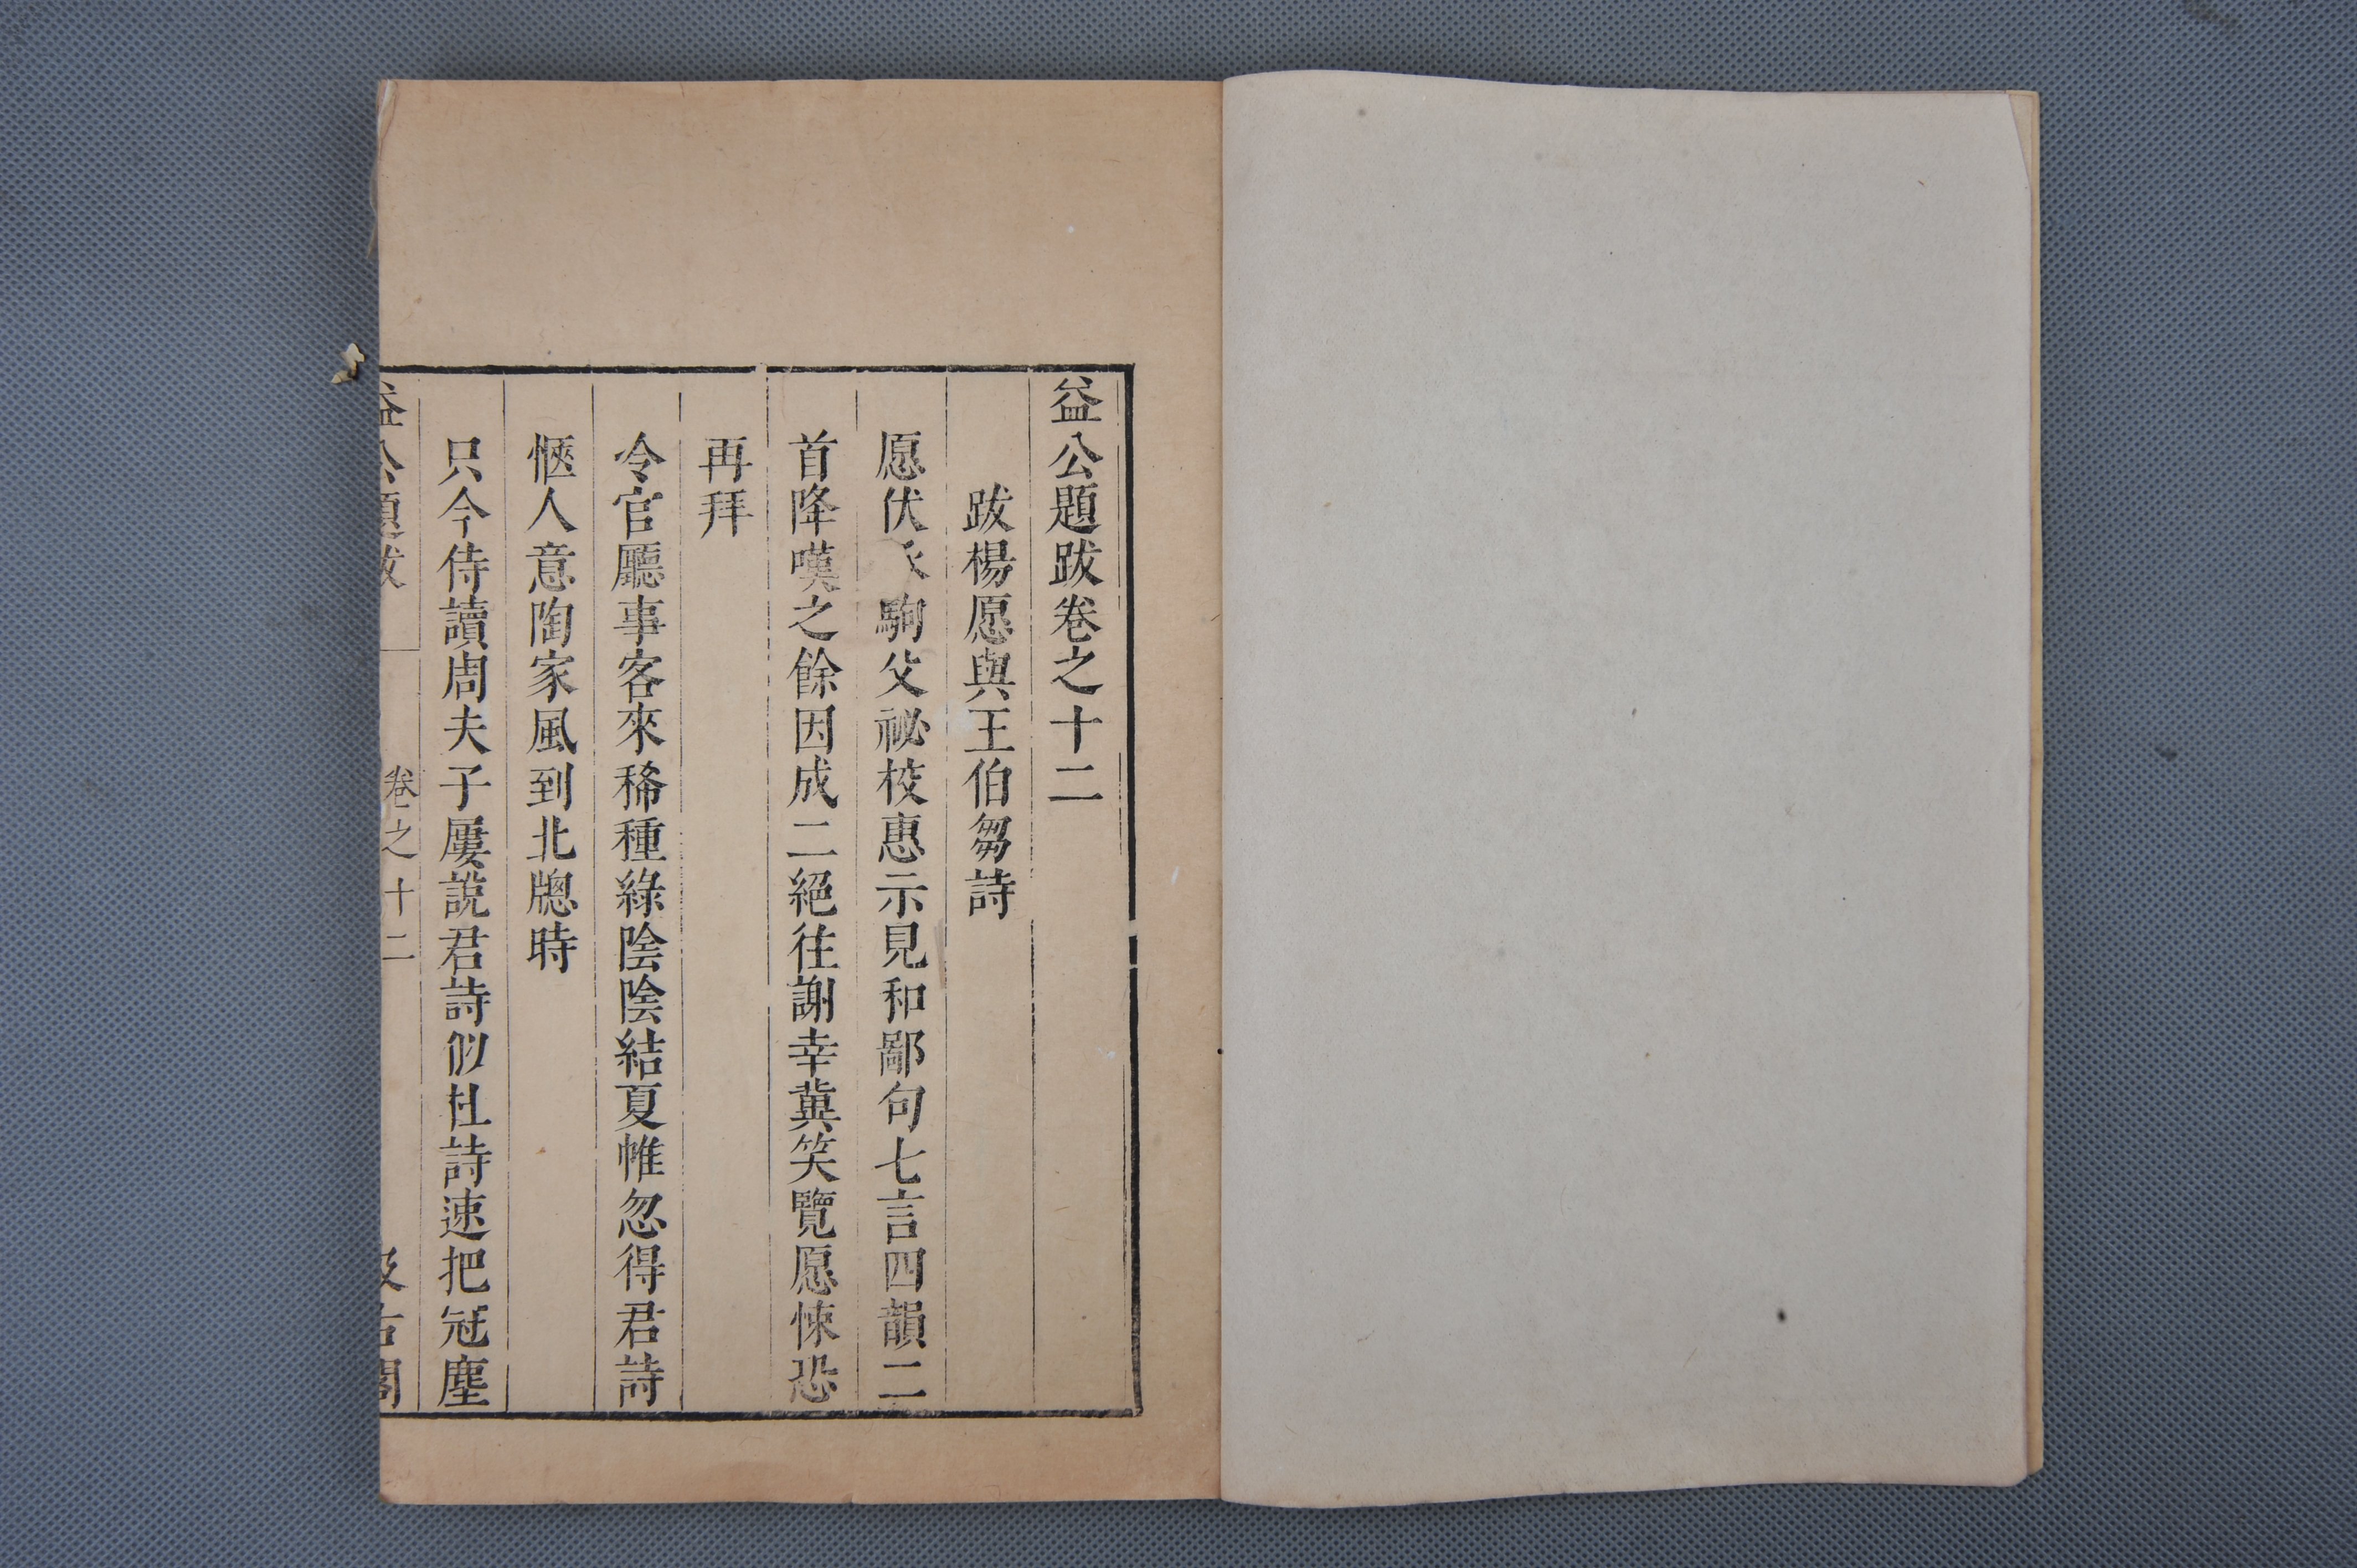 益公題跋卷之十二
跋楊愿與王伯芻詩
愿伏承駒父祕校惠示見和鄙句七言四韻二
首降嘆之餘因成二絕往謝幸冀笑覽愿悚恐
再拜
令官廳事客來稀種綠陰陰結夏帷忽得君詩
愜人意陶家風到北牎時
只今侍讀周夫子屢說君詩似杜詩速把冠塵
益公題跋 卷之十二 汲古閣